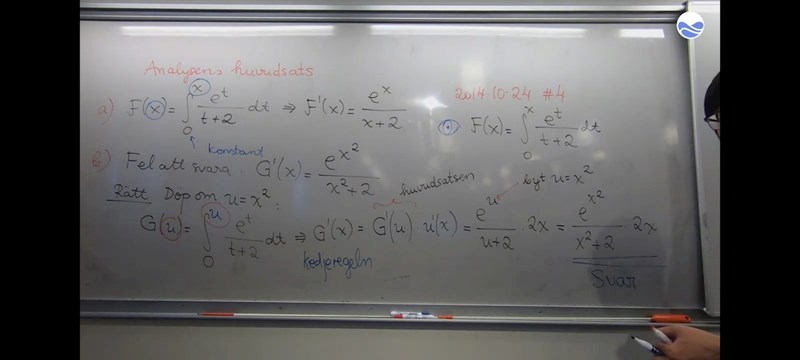 Analysens huvudsats
a) F(x) = ∫₀ˣ eᵗ/(t+2) dt ⇒ F'(x) = eˣ/(x+2)
konstant
2014 10-24 #4
F(x) = ∫₀ˣ eᵗ/(t+2) dt
b) Fel att svara: G'(x) = e^(x²)/(x²+2)
Rätt Döp om u = x²:
huvudsatsen
byt u = x²
G(u) = ∫₀ᵘ eᵗ/(t+2) dt ⇒ G'(x) = G'(u) · u'(x) = eᵘ/(u+2) · 2x = e^(x²)/(x²+2) · 2x
kedjeregeln
Svar